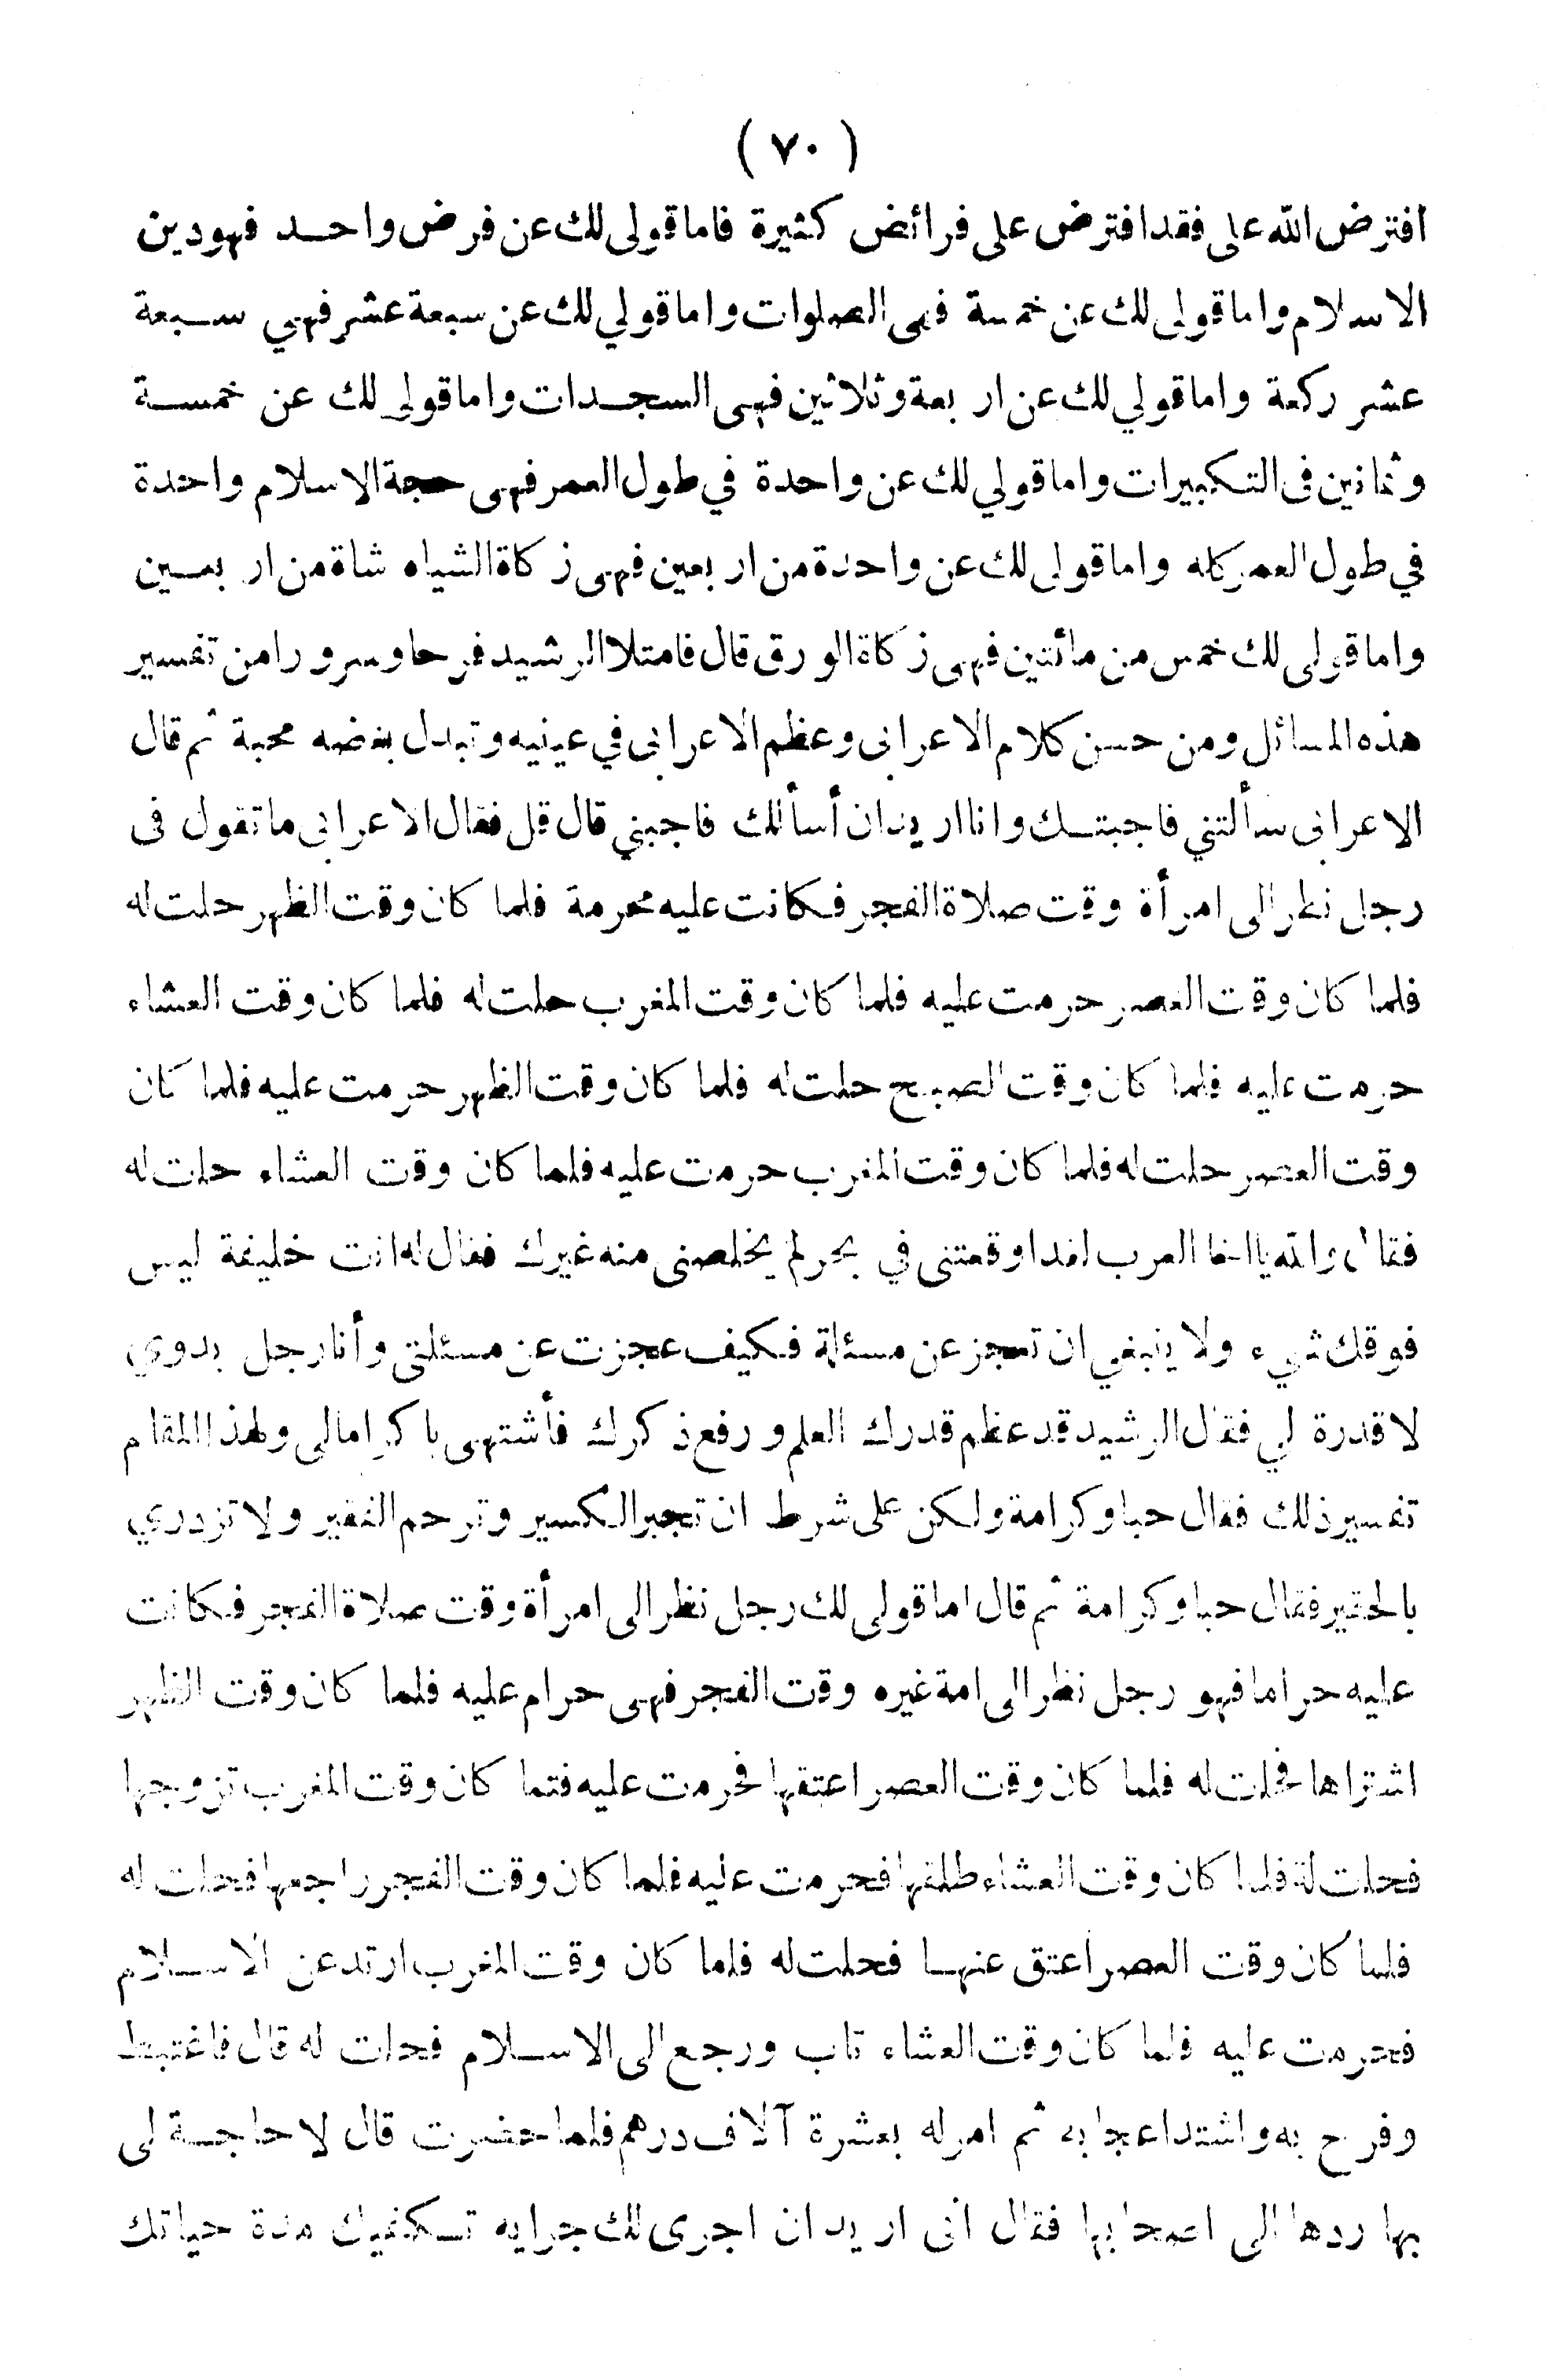 ( ٧٠ )
افترض الله على فقد افترض على فرائض كثيرة فاما قولى لك عن فرض واحد فهو دين
الاسلام واما قولى لك عن خمسة فهى الصلوات واما قولي لك عن سبعة عشر فهي سبعة
عشر ركعة واما قولي لك عن اربعة وثلاثين فهى السجدات واما قولى لك عن خمسة
وثمانين فى التكبيرات واما قولي لك عن واحدة في طول العمر فهى حجة الاسلام واحدة
في طول العمر كله واما قولى لك عن واحدة من اربعين فهى زكاة الشياه شاة من اربعين
واما قولى لك خمس من مائتين فهى زكاة الورق قال فامتلا الرشيد فرحا وسرورا من تفسير
هذه المسائل ومن حسن كلام الاعرابى وعظم الاعرابى في عينيه وتبدل بغضه محبة ثم قال
الاعرابى سألتني فاجبتك وانا اريد ان أسألك فاجبني قال قل فقال الاعرابى ما تقول فى
رجل نظر الى امرأة وقت صلاة الفجر فكانت عليه محرمة فلما كان وقت الظهر حلت له
فلما كان وقت العصر حرمت عليه فلما كان وقت المغرب حلت له فلما كان وقت العشاء
حرمت عليه فلما كان وقت الصبح حلت له فلما كان وقت الظهر حرمت عليه فلما كان
وقت العصر حلت له فلما كان وقت المغرب حرمت عليه فلما كان وقت العشاء حلت له
فقال والله يا اخا العرب لقد اوقعتنى في بحر لم يخلصنى منه غيرك فقال له انت خليفة ليس
فوقك شيء ولا ينبغي ان تعجز عن مسئلة فكيف عجزت عن مسئلتى وأنا رجل بدوي
لا قدرة لي فقال الرشيد قد عظم قدرك العلم ورفع ذكرك فأشتهى باكرامالى ولهذا المقام
تفسير ذلك فقال حبا وكرامة ولكن على شرط ان تجبر الكسير وترحم الفقير ولا تزدري
بالحقير فقال حبا وكرامة ثم قال اما قولى لك رجل نظر الى امرأة وقت صلاة الفجر فكانت
عليه حراما فهو رجل نظر الى امة غيره وقت الفجر فهى حرام عليه فلما كان وقت الظهر
اشتراها فحلت له فلما كان وقت العصر اعتقها فحرمت عليه فتما كان وقت المغرب تزوجها
فحلت لة فلما كان وقت العشاء طلقها فحرمت عليه فلما كان وقت الفجر راجعها فحلت له
فلما كان وقت العصر اعتق عنها فحلت له فلما كان وقت المغرب ارتد عن الاسلام
فحرمت عليه فلما كان وقت العشاء تاب ورجع الى الاسلام فحلت له قال فاغتبط
وفرح به واشتد اعجابه ثم امر له بعشرة آلاف درهم فلما حضرت قال لا حاجة لى
بها ردها الى اصحابها فقال انى اريد ان اجرى لك جرايه تسكفيك مدة حياتك